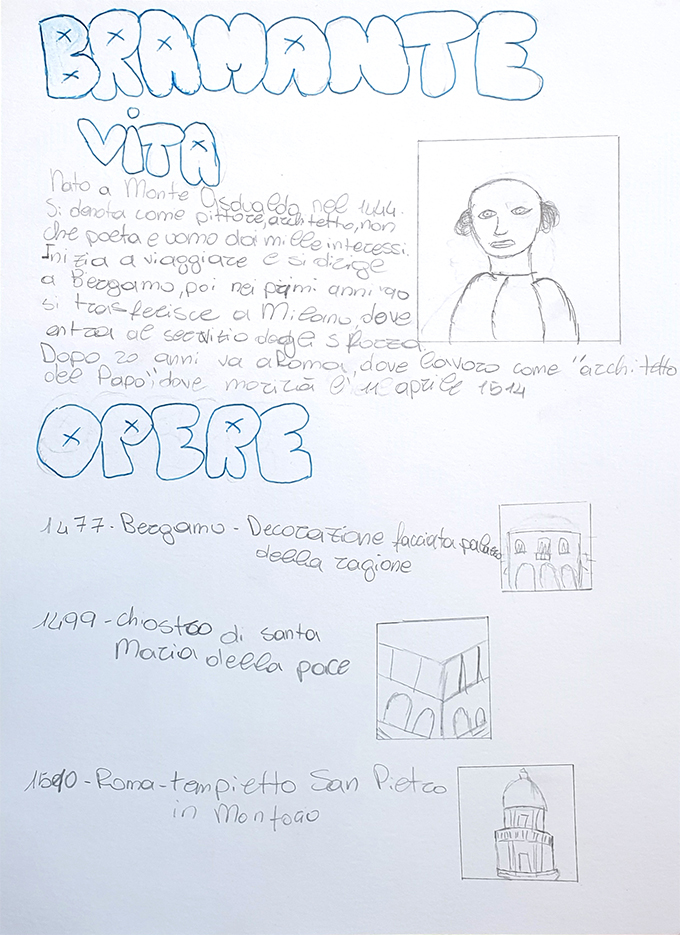 BRAMANTE
VITA
Nato a Monte Asdualdo nel 1444.
Si denota come pittore, architetto, non
che poeta e uomo dai mille interessi.
Inizia a viaggiare e si dirige
a Bergamo, poi nei primi anni '90
si trasferisce a Milano, dove
entra al servizio degli Sforza
Dopo 20 anni va a Roma, dove lavoro come "architetto
del Papa" dove morirà l'11 aprile 1514
OPERE
1477. Bergamo - Decorazione facciata palazzo
della ragione
1499 - chiostro di santa
Maria della pace
Roma - tempietto San Pietro
in Montoro